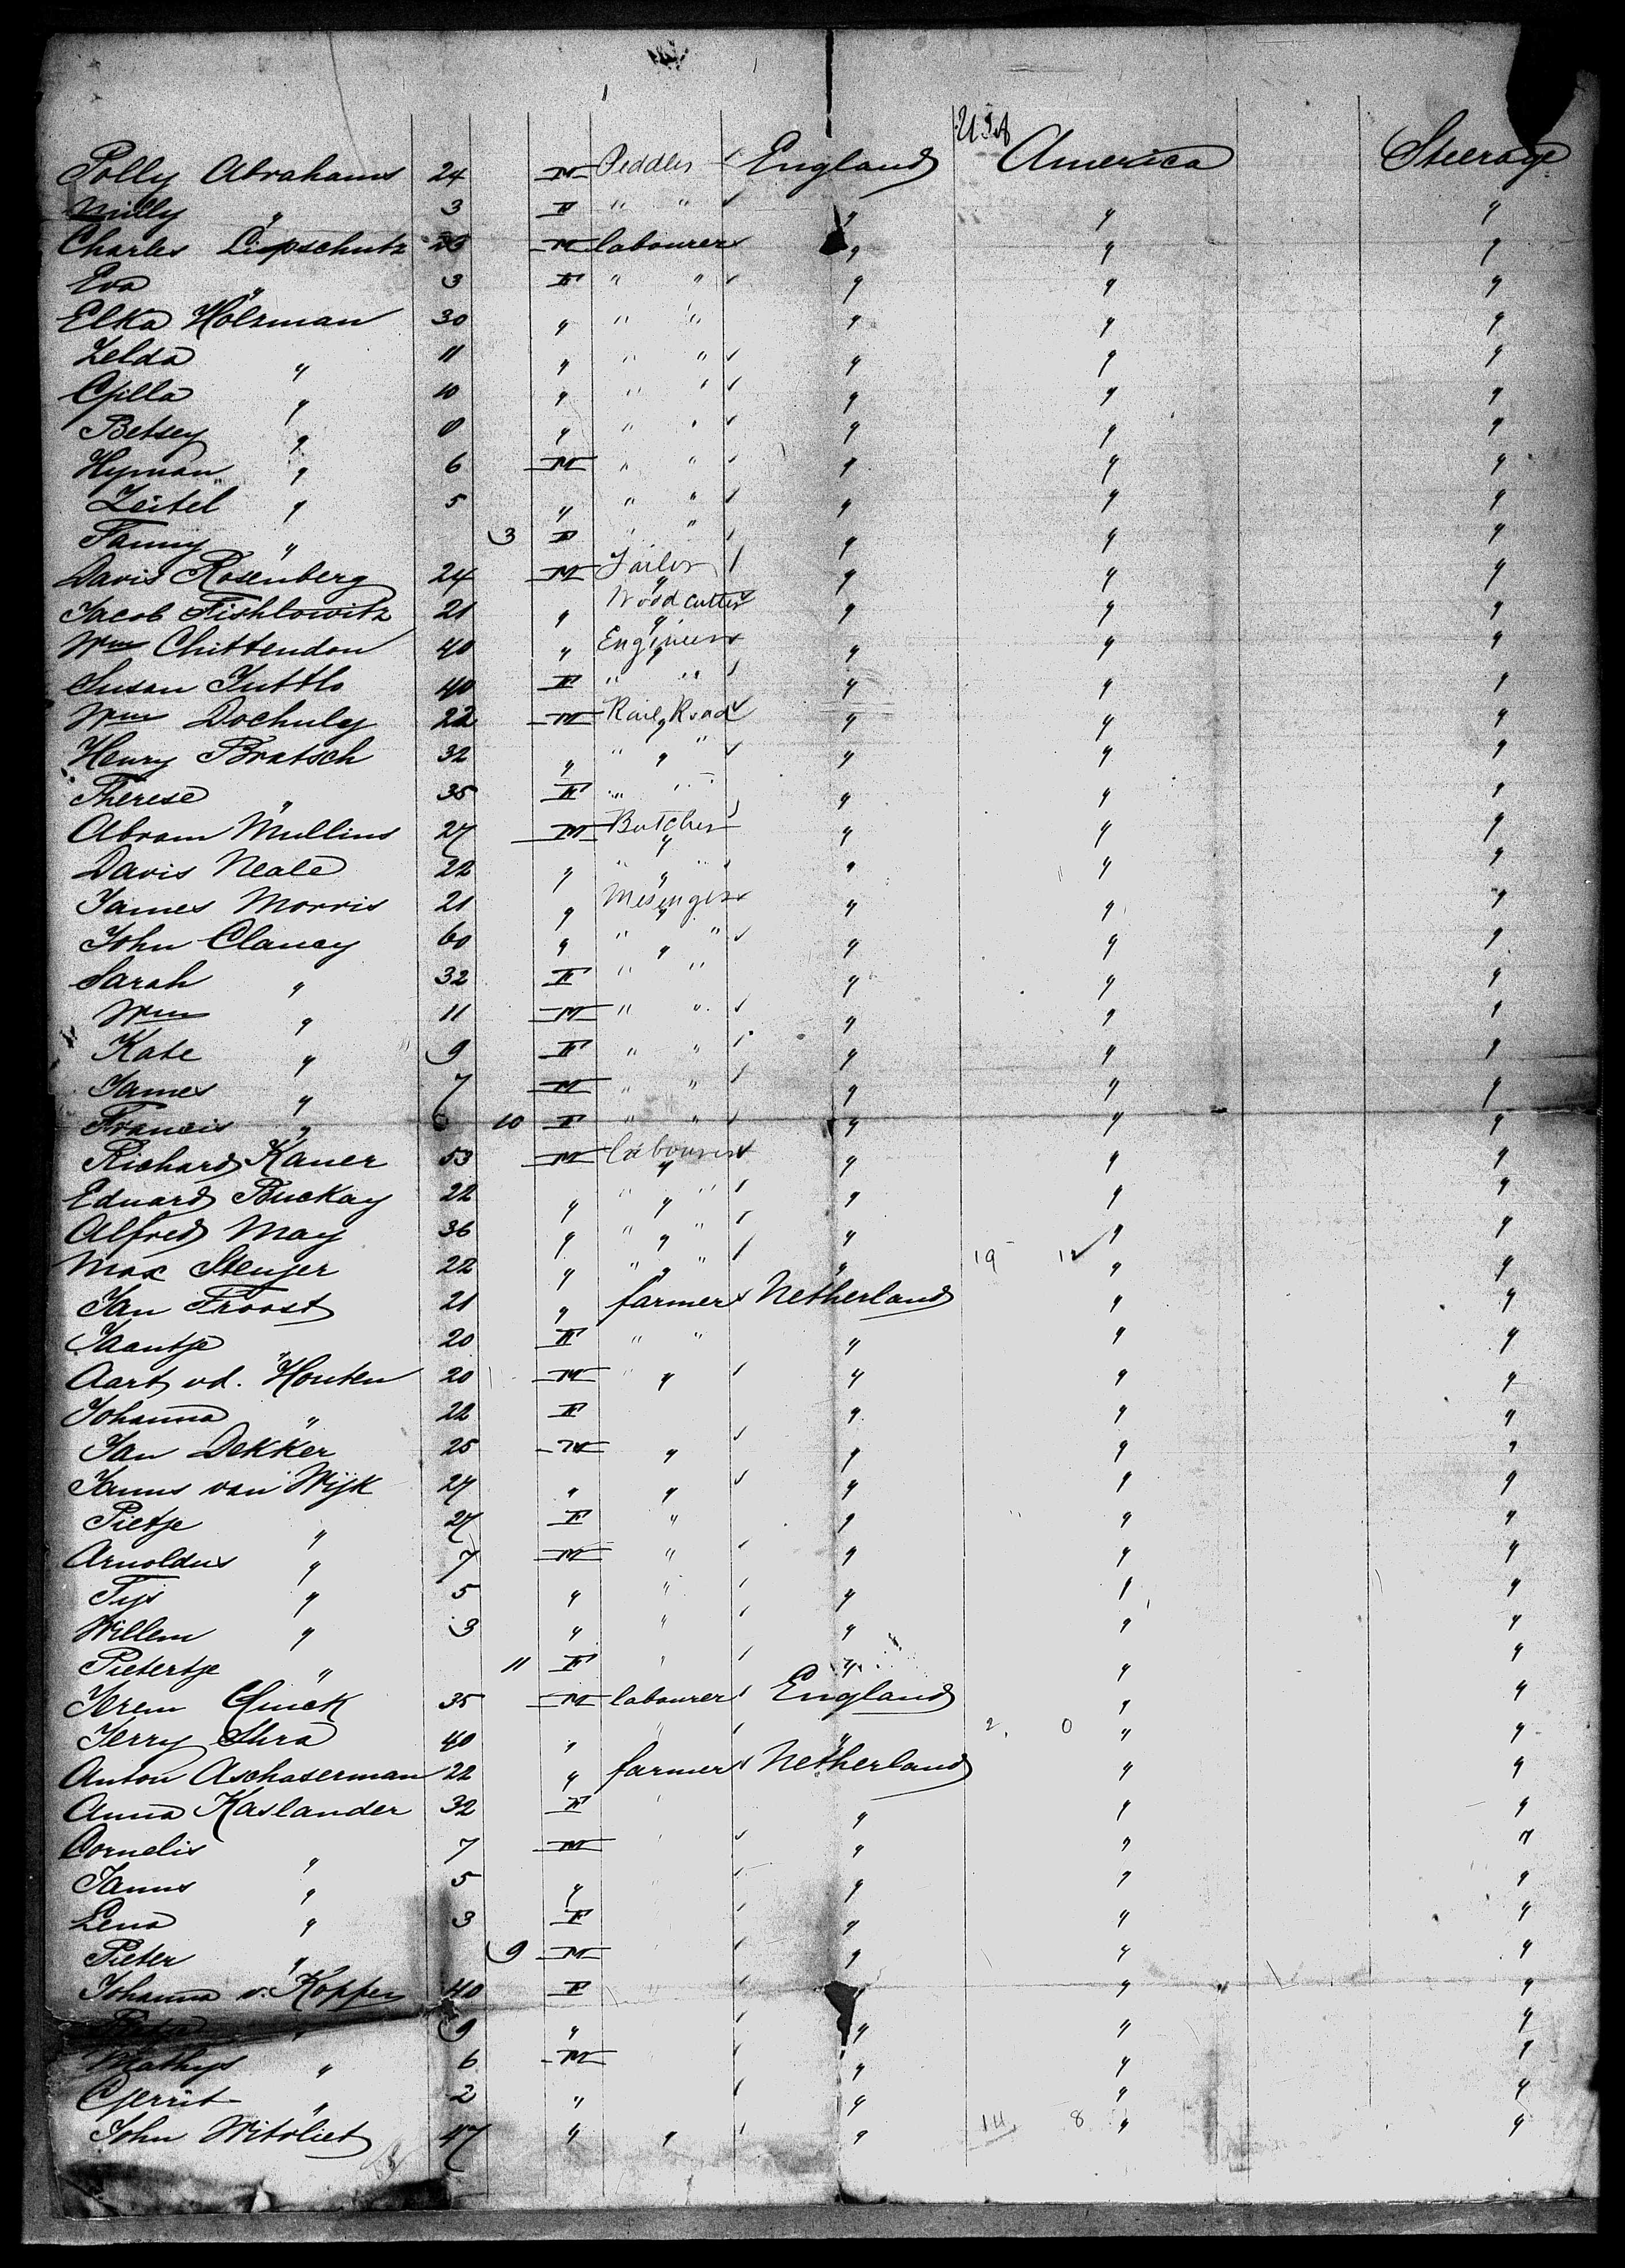 U.S.A
Polly Abrahams 24 M Peddler ✓ England America Steerage
Milly " 3 F " " ✓ " " "
Charles Lipschutz 23 M labourer " " "
Eva " 3 F " " ✓ " " "
Elka Holzman 30 " " " " " "
Zelda " 11 " " " ✓ " " "
Gilla " 10 " " " ✓ " " "
Betsey " 8 " " " ✓ " " "
Hyman " 6 M " " ✓ " " "
Zeitel " 5 " " " ✓ " " "
Fanny " 3 F " " ✓ " " "
Davis Rosenberg 24 M Tailor ✓ " " "
Jacob Fishlowitz 21 " Wood cutter " " "
Wm Chittendon 40 " Engineer " " "
Susan Tuttle 40 F " " ✓ " " "
Wm Dochuly 22 M Rail Road ✓ " " "
Henry Bratsch 32 " " " ✓ " " "
Therese " 35 F " " " " "
Abram Mullins 27 M Butcher ✓ " " "
Davis Neale 22 " " " ✓ " " "
James Morris 21 " Mesenger " " "
John Clancy 60 " " " ✓ " " "
Sarah " 32 F " " " " "
Wm " 11 M " " ✓ " " "
Kate " 9 F " " ✓ " " "
James " 7 M " " ✓ " " "
Francis " 6 10 F " " ✓ " " "
Richard Kaner 53 M labourer ✓ " " "
Eduard Buckay 22 " " " ✓ " " "
Alfred May 36 " " " ✓ " " "
Max Stenger 22 " " " ✓ " 19 12 ✓ " "
Jan Troost 21 " farmer Netherland " "
Jaantje " 20 F " " " " "
Aart vd. Houten 20 M " ✓ " " "
Johanna " 22 F " " "
Jan Dekker 25 M " ✓ " " "
Janus van Wijk 27 " " ✓ " " "
Pietje " 27 F " " " "
Arnoldus " 7 M " ✓ " " "
Tijs " 5 " " ✓ " " "
Willem " 3 " " ✓ " " "
Pietertje " 11 F " ✓ " " "
Jerem Quick 35 M labourer ✓ England " "
Jerry Shra 40 " " ✓ " 2 0 " "
Anton Aschaserman 22 " farmer Netherland " "
Anna Kaslander 32 F " " " "
Cornelis " 7 M ✓ " " "
Janus " 5 " ✓ " " "
Lena " 3 F ✓ " " "
Pieter " 9 M ✓ " " "
Johanna v. Koppen 40 F " ✓ " " "
" 9 " ✓ " " "
Mathys " 6 M ✓ " " "
Gerrit " 2 " ✓ " " "
John Witvliet 47 " " ✓ " 14 8 " "